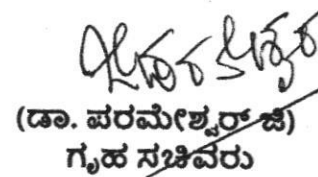 (ಡಾ. ಪರಮೇಶ್ವರ್ ಜಿ)
ಗೃಹ ಸಚಿವರು